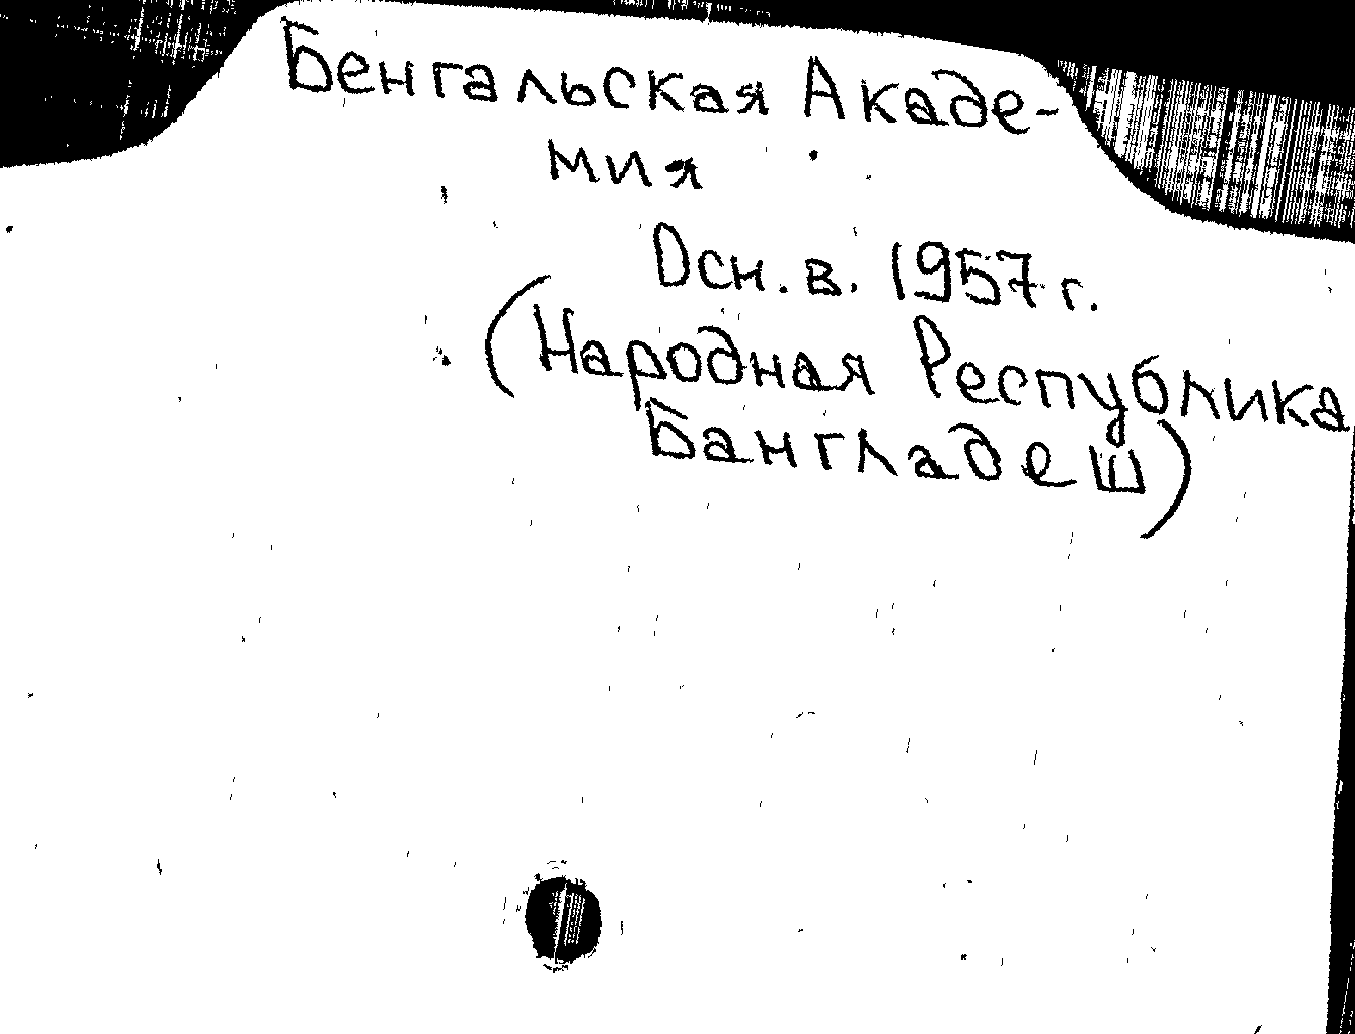 Бенгальская Акаде-
мия
Осн. в. 1957 г.
(Народная Республика
Бангладеш)